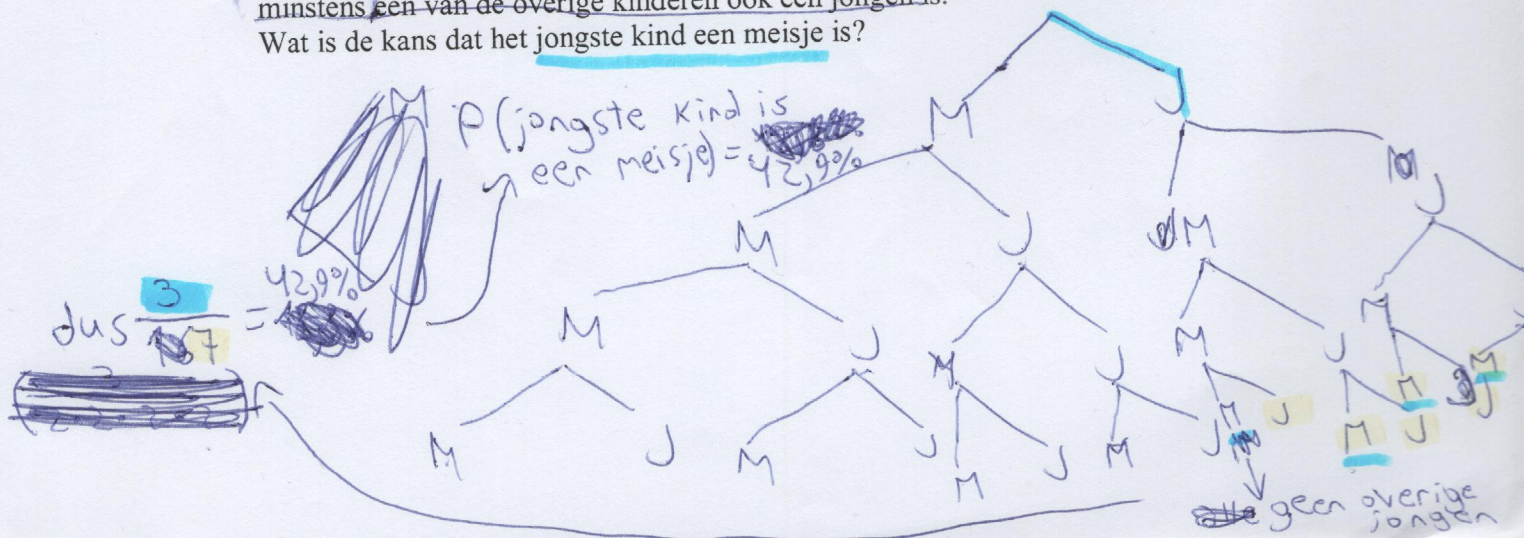 minstens een van de overige kinderen ook een jongen is.
Wat is de kans dat het jongste kind een meisje is?
P(jongste kind is
een meisje) = 42,9%
dus 3/7 = 42,9%
M J
M J M J
M J M J M J M
M J M J M J M J M J M J M J M J
geen overige
jongen